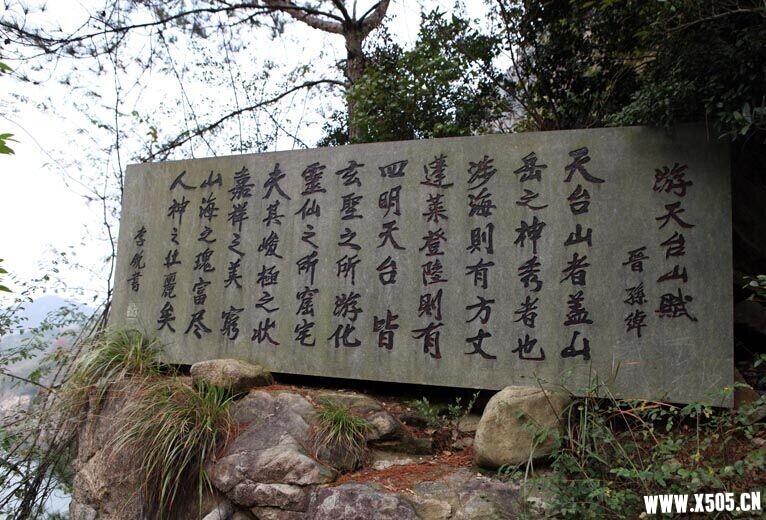 游天台山赋
晋 孙绰
天台山者盖山
岳之神秀者也
涉海则有方丈
蓬莱登陆则有
四明天台皆
玄圣之所游化
灵仙之所窟宅
夫其峻极之状
嘉祥之美穷
山海之瑰富尽
人神之壮丽矣
WWW.X505.CN